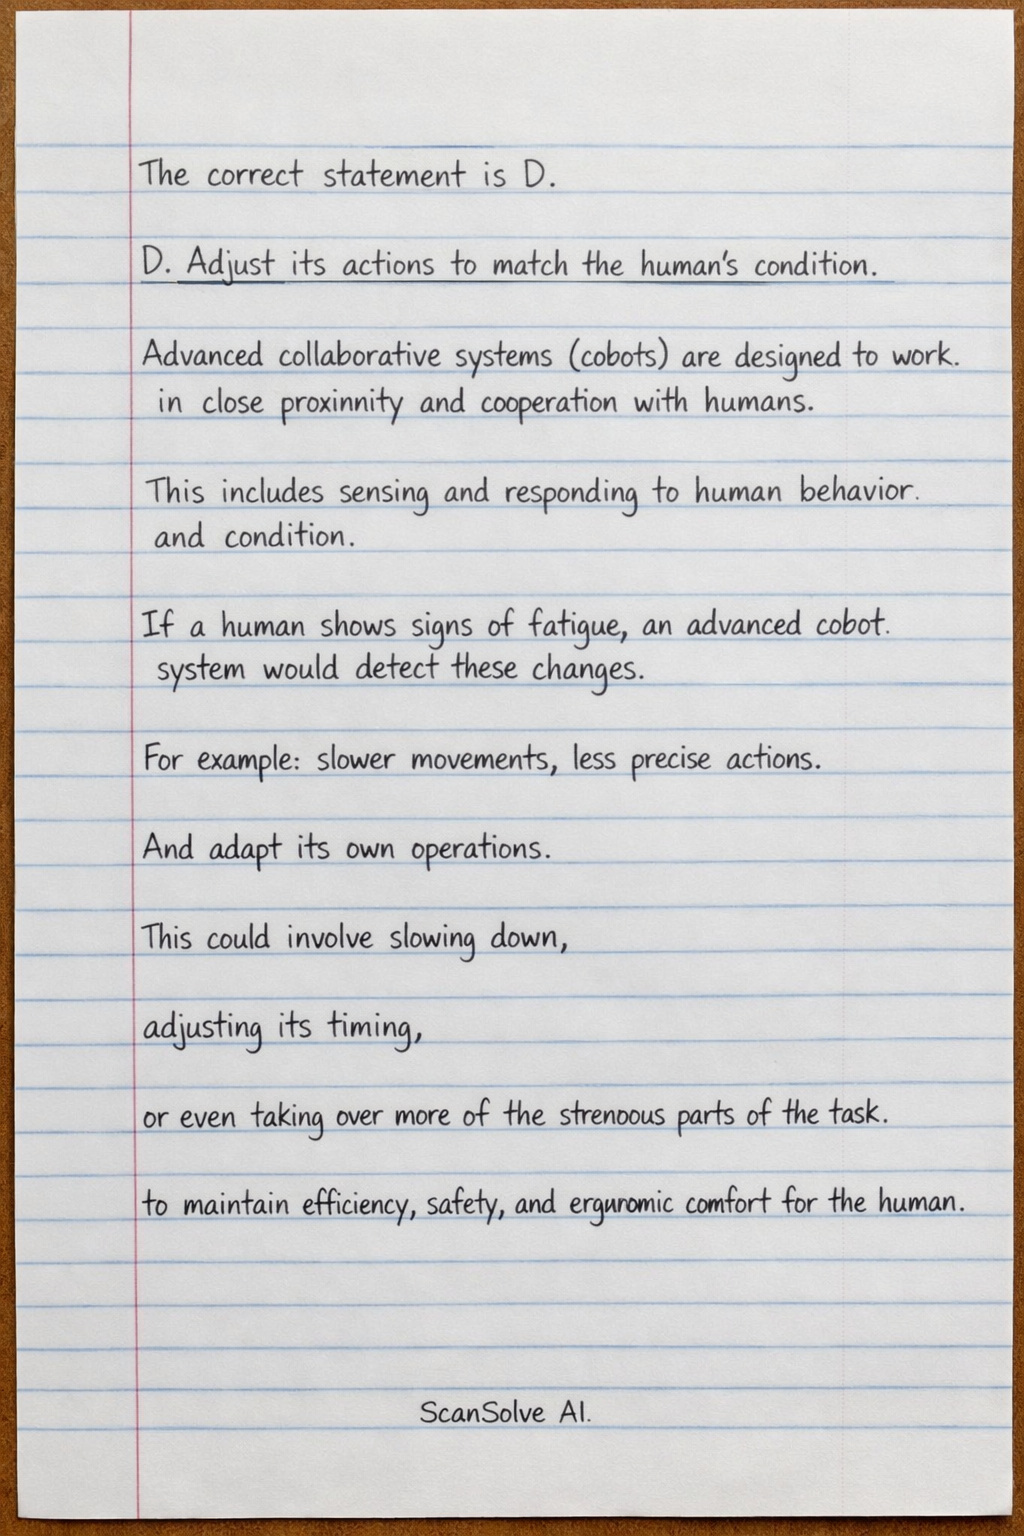 The correct statement is D.
D. Adjust its actions to match the human's condition.
Advanced collaborative systems (cobots) are designed to work.
in close proxinnity and cooperation with humans.
This includes sensing and responding to human behavior.
and condition.
If a human shows signs of fatigue, an advanced cobot.
system would detect these changes.
For example: slower movements, less precise actions.
And adapt its own operations.
This could involve slowing down,
adjusting its timing,
or even taking over more of the strenoous parts of the task.
to maintain efficiency, safety, and erguromic comfort for the human.
ScanSolve AI.